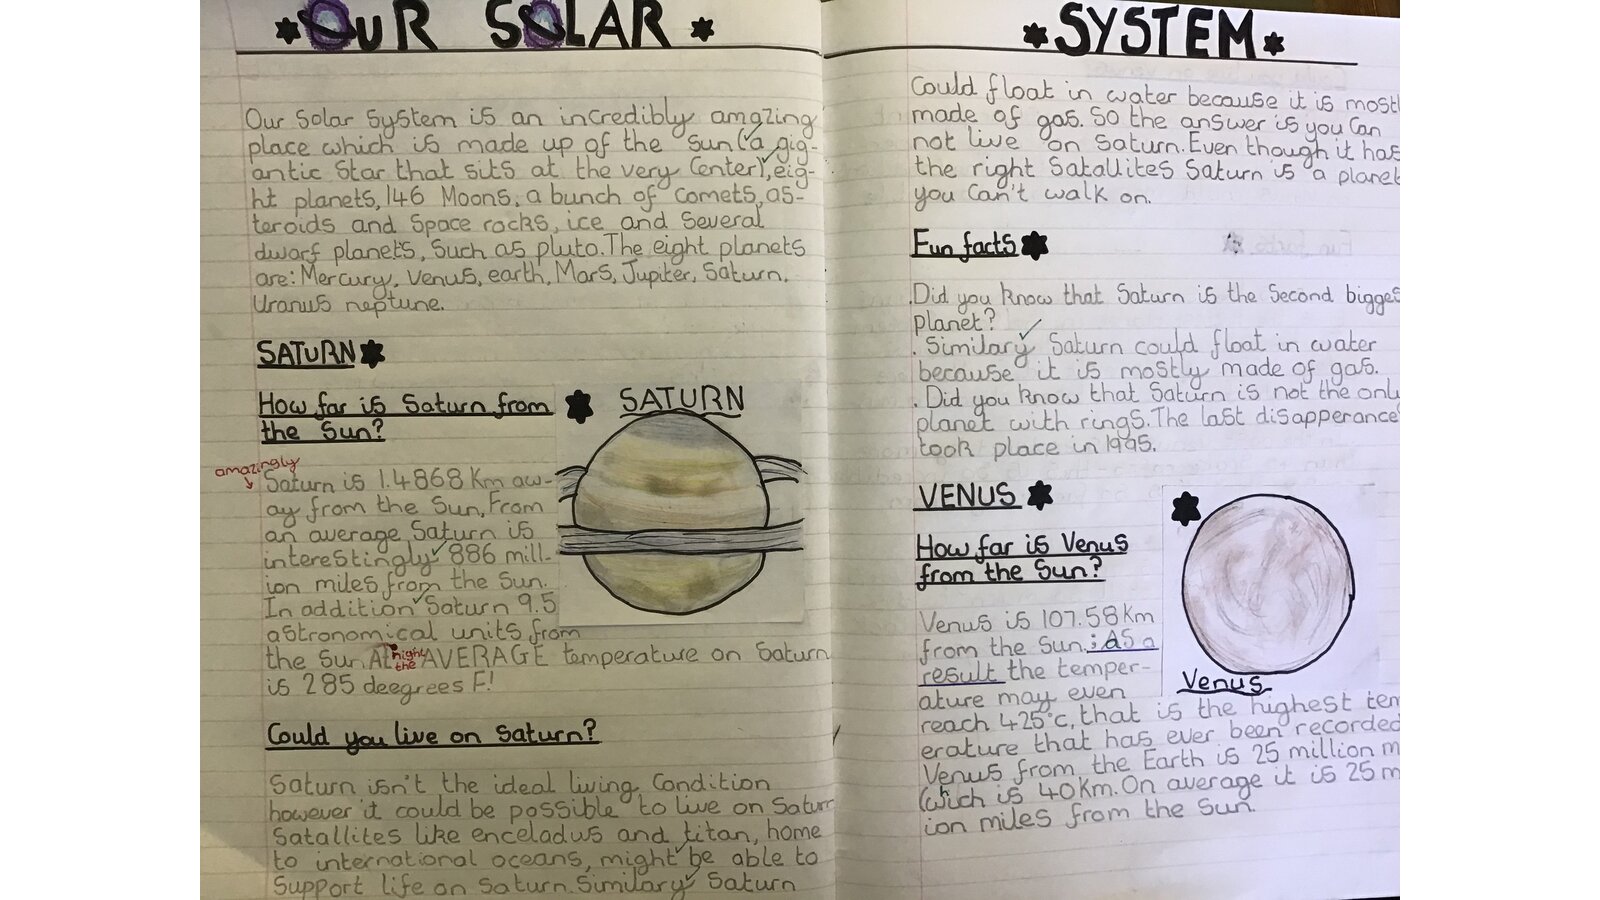 OUR SOLAR SYSTEM
Our Solar System is an incredibly amazing
place which is made up of the Sun (a gig-
antic Star that sits at the very Center), eig-
ht planets, 146 Moons, a bunch of Comets, as-
teroids and Space rocks, ice and Several
dwarf planets, Such as pluto. The eight planets
are: Mercury, Venus, earth, Mars, Jupiter, Saturn,
Uranus neptune.
SATURN
How far is Saturn from
the Sun?
SATURN
amazingly
Saturn is 1.4868 Km aw-
ay from the Sun, From
an average Saturn is
interestingly 886 mill-
ion miles from the Sun.
In addition Saturn 9.5
astronomical units from
the Sun. At the AVERAGE temperature on Saturn
night
is 285 deegrees F!
Could you live on Saturn?
Saturn isn't the ideal living Condition
however it could be possible to live on Saturn
Satallites like enceladus and titan, home
to international oceans, might be able to
Support life on Saturn. Similary Saturn
Could float in water because it is mostl
made of gas. So the answer is you Can
not live on Saturn. Even though it has
the right Satallites Saturn is a planet
you Can't walk on.
Fun facts
. Did you know that Saturn is the Second bigges
planet?
. Similary Saturn could float in water
because it is mostly made of gas.
. Did you know that Saturn is not the only
planet with rings. The last disapperance
took place in 1995.
VENUS
How far is Venus
from the Sun?
Venus is 107.58 Km
from the Sun. ; AS a
result the temper-
ature may even
reach 425°c, that is the highest tem
erature that has ever been recorded
Venus from the Earth is 25 million m
(which is 40 Km. On average it is 25 m
ion miles from the Sun.
Venus